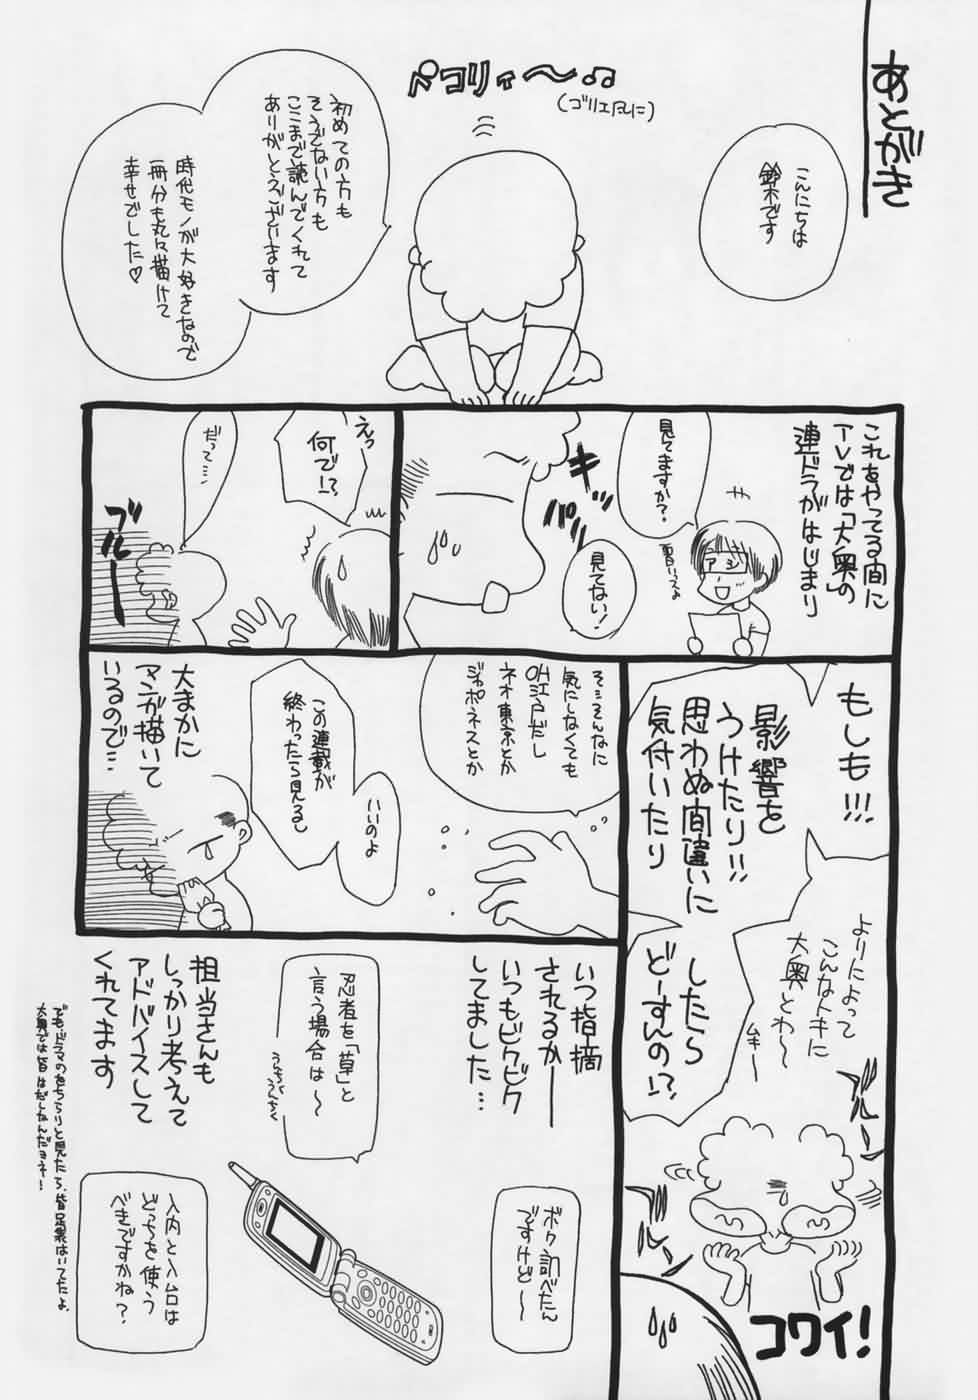 あとがき
こんにちは
鈴木です
ペコリィ〜♫
(ゴリエ風に)
初めての方も
そうでない方も
ここまで読んでくれて
ありがとうございます
時代モノが大好きなので
一冊分も丸々描けて
幸せでした♡
これをやってる間に
TVでは「大奥」の
連ドラがはじまり
見てますか?
アシ
キパッ
見てない!
えっ
何で!?
だって…
ブルーー
もしも!!!
影響を
うけたり!!
思わぬ間違いに
気付いたり
したら
どーすんの!?
よりによって
こんなトキに
大奥とわ〜
ムキー
ブルー
ブルルン
コワイ!
そ…そんなに
気にしなくても
OH江戸だし
ネオ東京とか
ジャポネスとか
いいのよ
この連載が
終わったら見るし
大まかに
マンガ描いて
いるので…
いつ指摘
されるかー
いつもビクビク
してました…
忍者を「草」と
言う場合は〜
うんちくうんちく
担当さんも
しっかり考えて
アドバイスして
くれてます
ボク調べたん
ですけど〜
入内と入台は
どっちを使う
べきですかね?
でも、ドラマのをちらりと見たら、皆足袋はいてたよ。
大奥では皆はだしなんだヨネ!